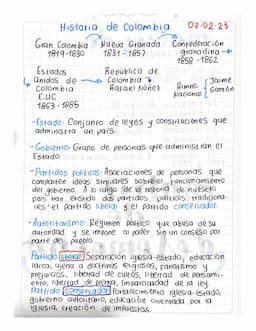 Historia de Colombia 07-02-23
Gran Colombia Nueva Granada Confederación
1819-1830 1831-1857 granadina
1858-1862
Estados República de
Unidos de Colombia Himno Jaime
Colombia Rafael Núñez Nacional Garzón
E.UC
1863-1885
-Estado: Conjunto de leyes y constituciones que
administra un país.
-Gobierno: Grupo de personas que administran el
Estado
-Partidos políticos: Asociaciones de personas que
comparten ideas similares sobre el funcionamiento
del gobierno. A lo largo de la historia de nuestro
país han existido dos partidos políticos tradiciona-
les: el partido liberal y el partido conservador.
-Autoritarismo: Régimen político que abusa de su
autoridad y se impone al poder sin un consejo por
parte del pueblo
Partido liberal: Separación iglesia-estado, educación
laica, ajena a doctrinas religiosas,
y
prejuicios, libertad de cultos, libertad de pensami-
ento, libertad de prensa, imparcialidad de la ley.
Partido conservador: Fortalecimiento iglesia-estado,
gobierno autoritario, educación orientada por la
iglesia, creación de impuestos.